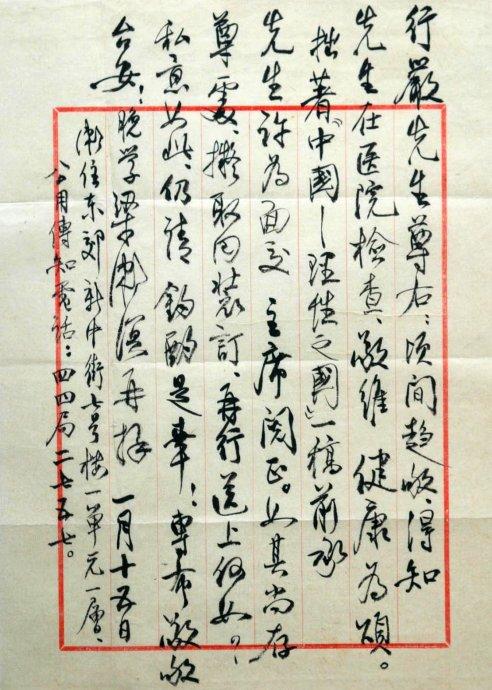 行嚴先生尊右:頃間趋候、得知
先生在医院檢查、敬維 健康為頌。
拙著「中國—理性之國」一稿前承
先生許為面交 主席閱正。如其尚存
尊處、擬取回裝訂、再行送上何如?、
私意如此、仍請 鈞酌是幸!專布敬候
台安! 晚学梁漱溟再拜 一月十五日
漱住东郊新中街七号楼一單元一層、
公用傳知電話:四四局二七五七。